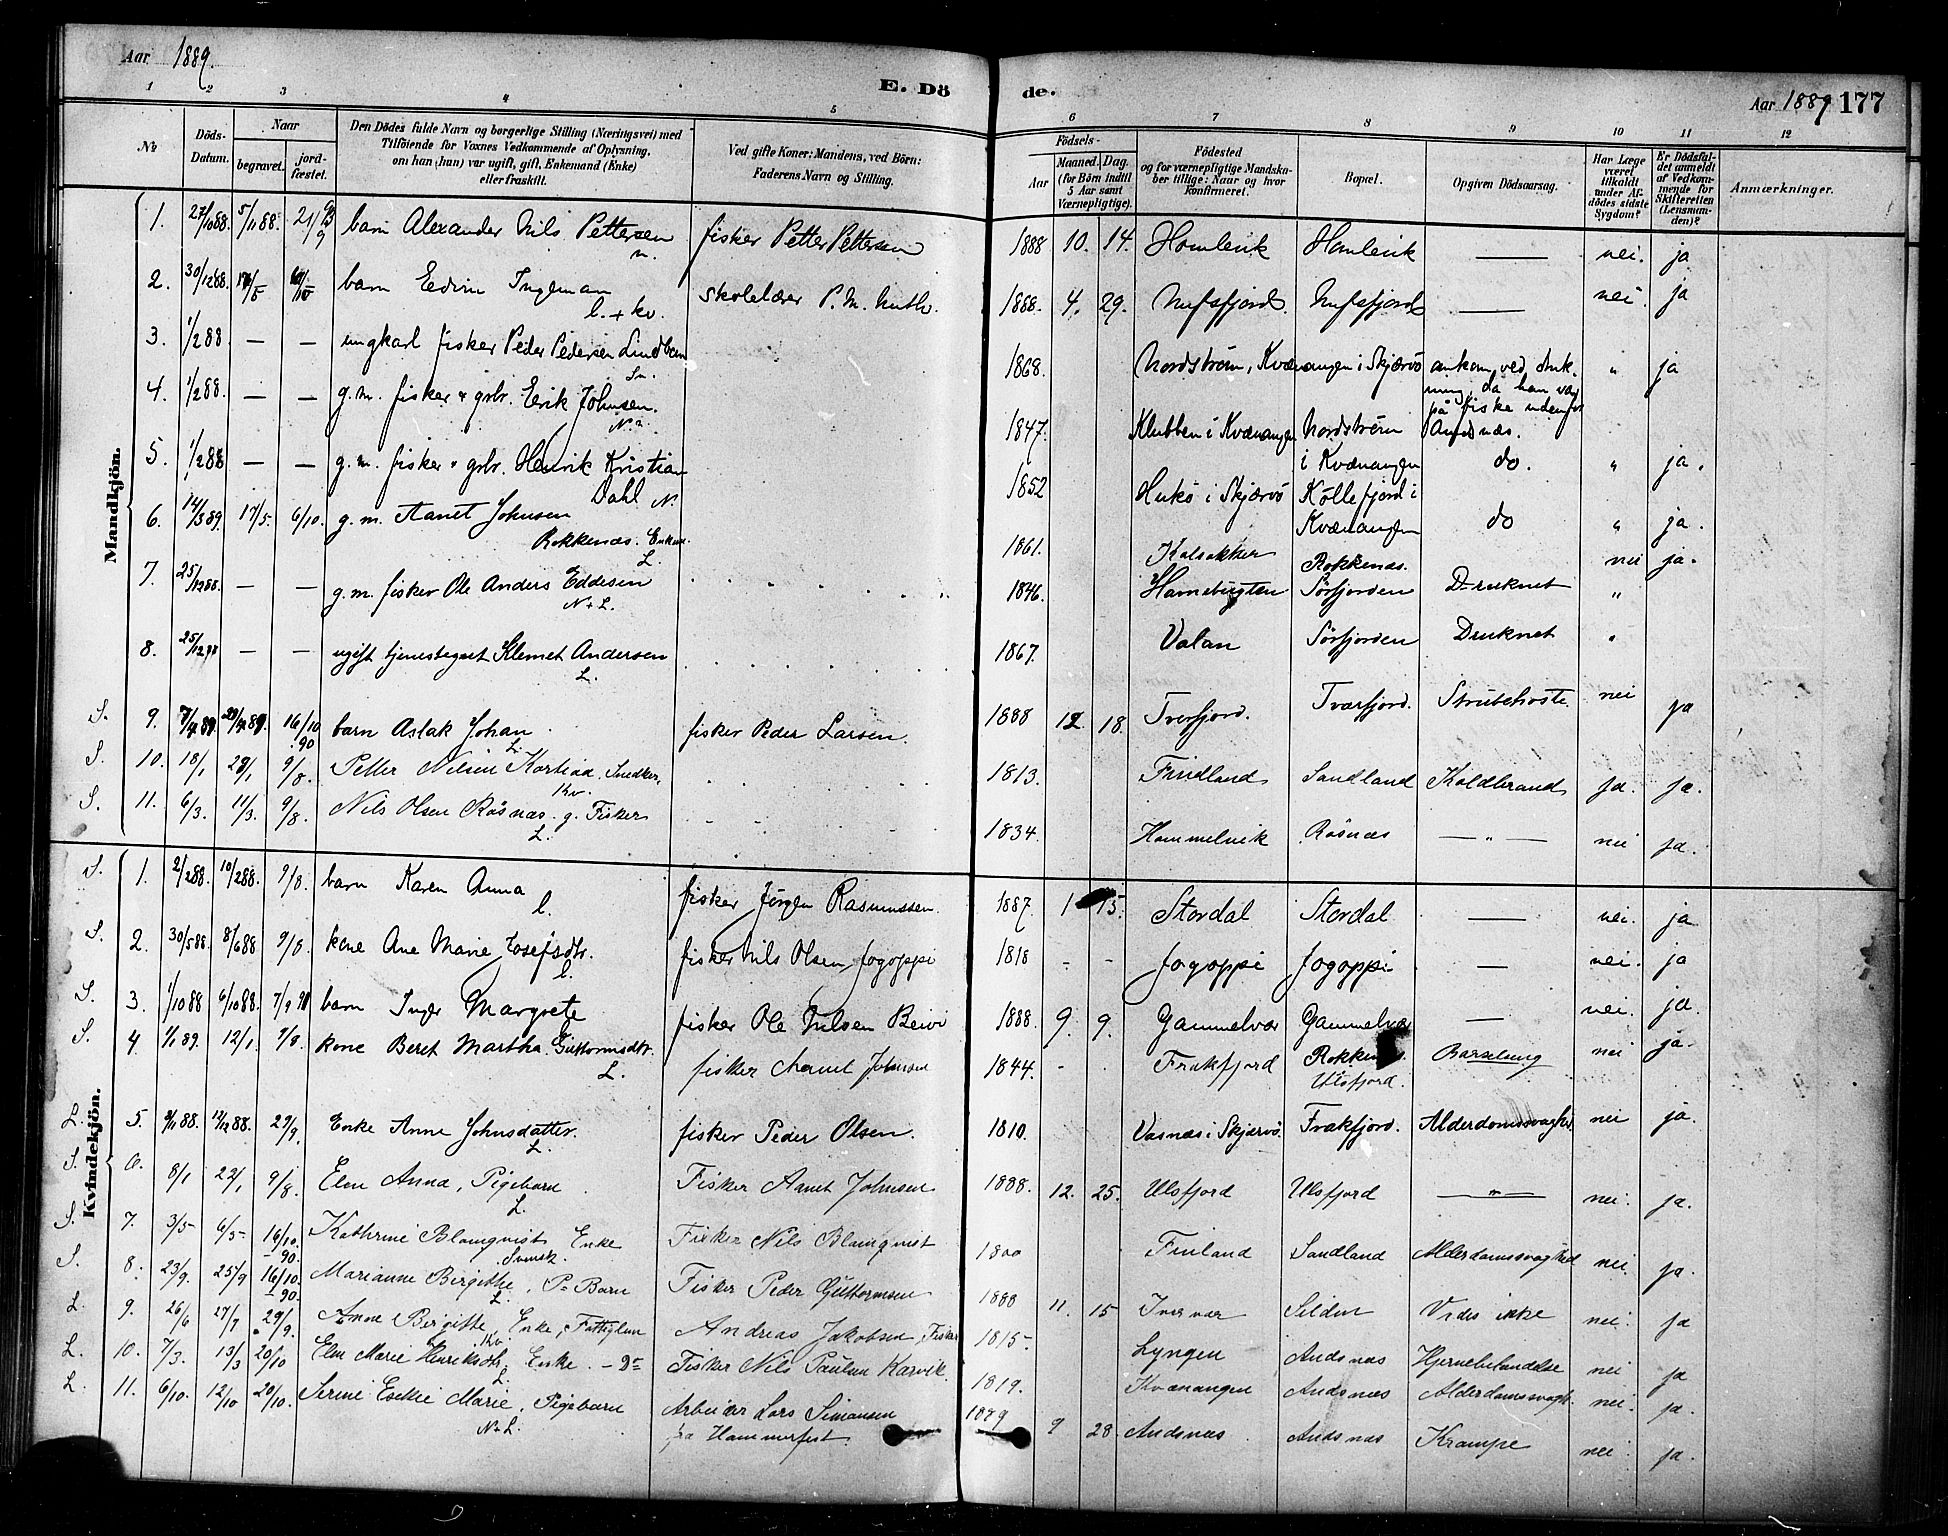 Aar 1889.
E. Dö
de.
Aar 1889 177
1 2 3 4 5 6 7 8 9 10 11 12
No
Döds-Datum.
Naar
begravet.
jord-fæstet.
Den Dödes fulde Navn og borgerlige Stilling (Næringsvei) med
Tilföiende for Voxnes Vedkommende af Oplysning,
om han (hun) var ugift, gift, Enkemand (Enke)
eller fraskilt.
Ved gifte Koner: Mandens, ved Börn:
Faderens Navn og Stilling.
Födsels-
Aar
Maaned.
Dag.
(for Börn indtil
5 Aar samt
Værnepligtige).
Födested
og for værnepligtige Mandska-
ber tillige: Naar og hvor
konfirmeret.
Bopæl.
Opgiven Dödsaarsag.
Har Læge
været
tilkaldt
under Af-
dödes sidste
Sygdom?
Er Dödsfal-
det anmeldt
af Vedkom-
mende for
Skifteretten
(Lensman-
den)?
Anmærkninger.
Mandkjön.
1. 27/10 88. 5/11 88. barn Alexander Nils Pettersen fisker Petter Pettersen 1888 10. 14. Homlevik Homlevik — nei. ja
n.
2. 30/12 88. barn Edvin Ingeman skolelærer P. M. 1888. 4. 29. — nei. ja
l. + kv.
3. 1/2 88. — — ungkarl fisker Peder Pedersen 1868. Nordström, Kvænangen i Skjærvö omkom ved druk- " ja
ning, da han var
på fiske udenfor
4. 1/2 88. — — g. m. fisker & grbr. Erik Johnsen. 1847. Klubben i Kvænangen Nordström Andsnæs.
5. 1/2 88 — — g. m. fisker & grbr. Henrik Kristian 1852 i Skjærvö i Kvænangen do. " ja.
Dahl N.
6. 14/5 89. 17/5. 6/10. g. m. Aanet Johnsen 1861. Köllefjord i Kvænangen do " ja.
Rokkenæs.
L.
Rokkenæs. nei ja.
7. 25/12 88. — — g. m. fisker Ole Anders Eddesen 1846. Havnebugten Sörfjorden Druknet "
N + L.
8. — — ugift tjenestegut Klemet Andersen 1867. Valan Sörfjorden Druknet "
L.
S. 9. 16/10 90 barn Aslak Johan. fisker Peder Larsen. 1888 12 18. Tverfjord. Tværfjord. Strubehoste nei ja
L.
S. 10. 18/1 9/8. Petter Nilsen Snedker, 1813. Findland Sandland Koldbrand ja. ja.
Kv.
S. 11. 6/3. 11/3. 9/8. Nils Olsen Rösnæs. g. Fisker 1834. Hammelvik Rösnæs — " — nei ja.
L.
Kvindekjön.
S. 1. 2/2 88. 10/2 88. 9/8. barn Karen Anna fisker Jörgen Rasmussen. 1887. 1 15. Stordal Stordal — nei. ja
l.
S. 2. 30/5 88. 8/6 88 9/8. kone Ane Marie Josefsdtr. fisker Nils Olsen Jogoppi 1818 - - Jogoppi Jogoppi — nei. ja
l.
S. 3. 1/10 88 6/10 88. barn Inger Margrete fisker Ole Nilsen Beivi 1888. 9 9. Gammelvær Gammelvær — nei. ja.
S. 4. 12/1. kone Beret Martha Guttormsdtr. fisker Aanet Johnsen 1844. - . Frakfjord Rokkenæs. Barselseng nei ja.
L.
Ulsfjord.
L. 5. 12/12 88. 29/9. Enke Anne Johnsdatter. fisker Peder Olsen. 1810. Vasnæs i Skjærvö. Frakfjord. Alderdomssvaghed nei ja.
L.
S. 6. 8/1 22/1 9/8. Elen Anna, Pigebarn Fisker Aanet Johnsen 1888. 12. 25. Ulsfjord Ulsfjord — " — nei. ja.
L.
S. 7. 3/5 6/5 16/10 90. Kathrine Blamqvist Enke Fisker Nils Blamqvist 1800 Finland Sandland Alderdamssvaghed nei. ja.
Svensk.
S. 8. 23/9. 25/9 16/10 90. Marianne Birgithe, P= Barn Fisker Peder Guttormsen 1888 11. 15 Iversvær Vides ikke nei. ja
L.
L. 9. 26/6 27/7 29/9. Anne Birgitte, Enke, Fattiglem Andreas Jakobsen, Fisker 1815 Lyngen Andsnæs nei ja
Kv.
L. 10. 7/3. 13/3 20/10 Elen Marie Henriksdtr. Enke. - D= Fisker Nils Paulsen Karvik. 1819. Kvænangen Andsnæs Alderdamssvagh. nei. ja.
L.
L. 11. 6/10. 12/10 20/10. Serine Marie, Pigebarn Arbeider Lars Simonsen 1889 9 28 Andsnæs Andsnæs Krampe nei ja.
N + L.
fra Hammerfest.